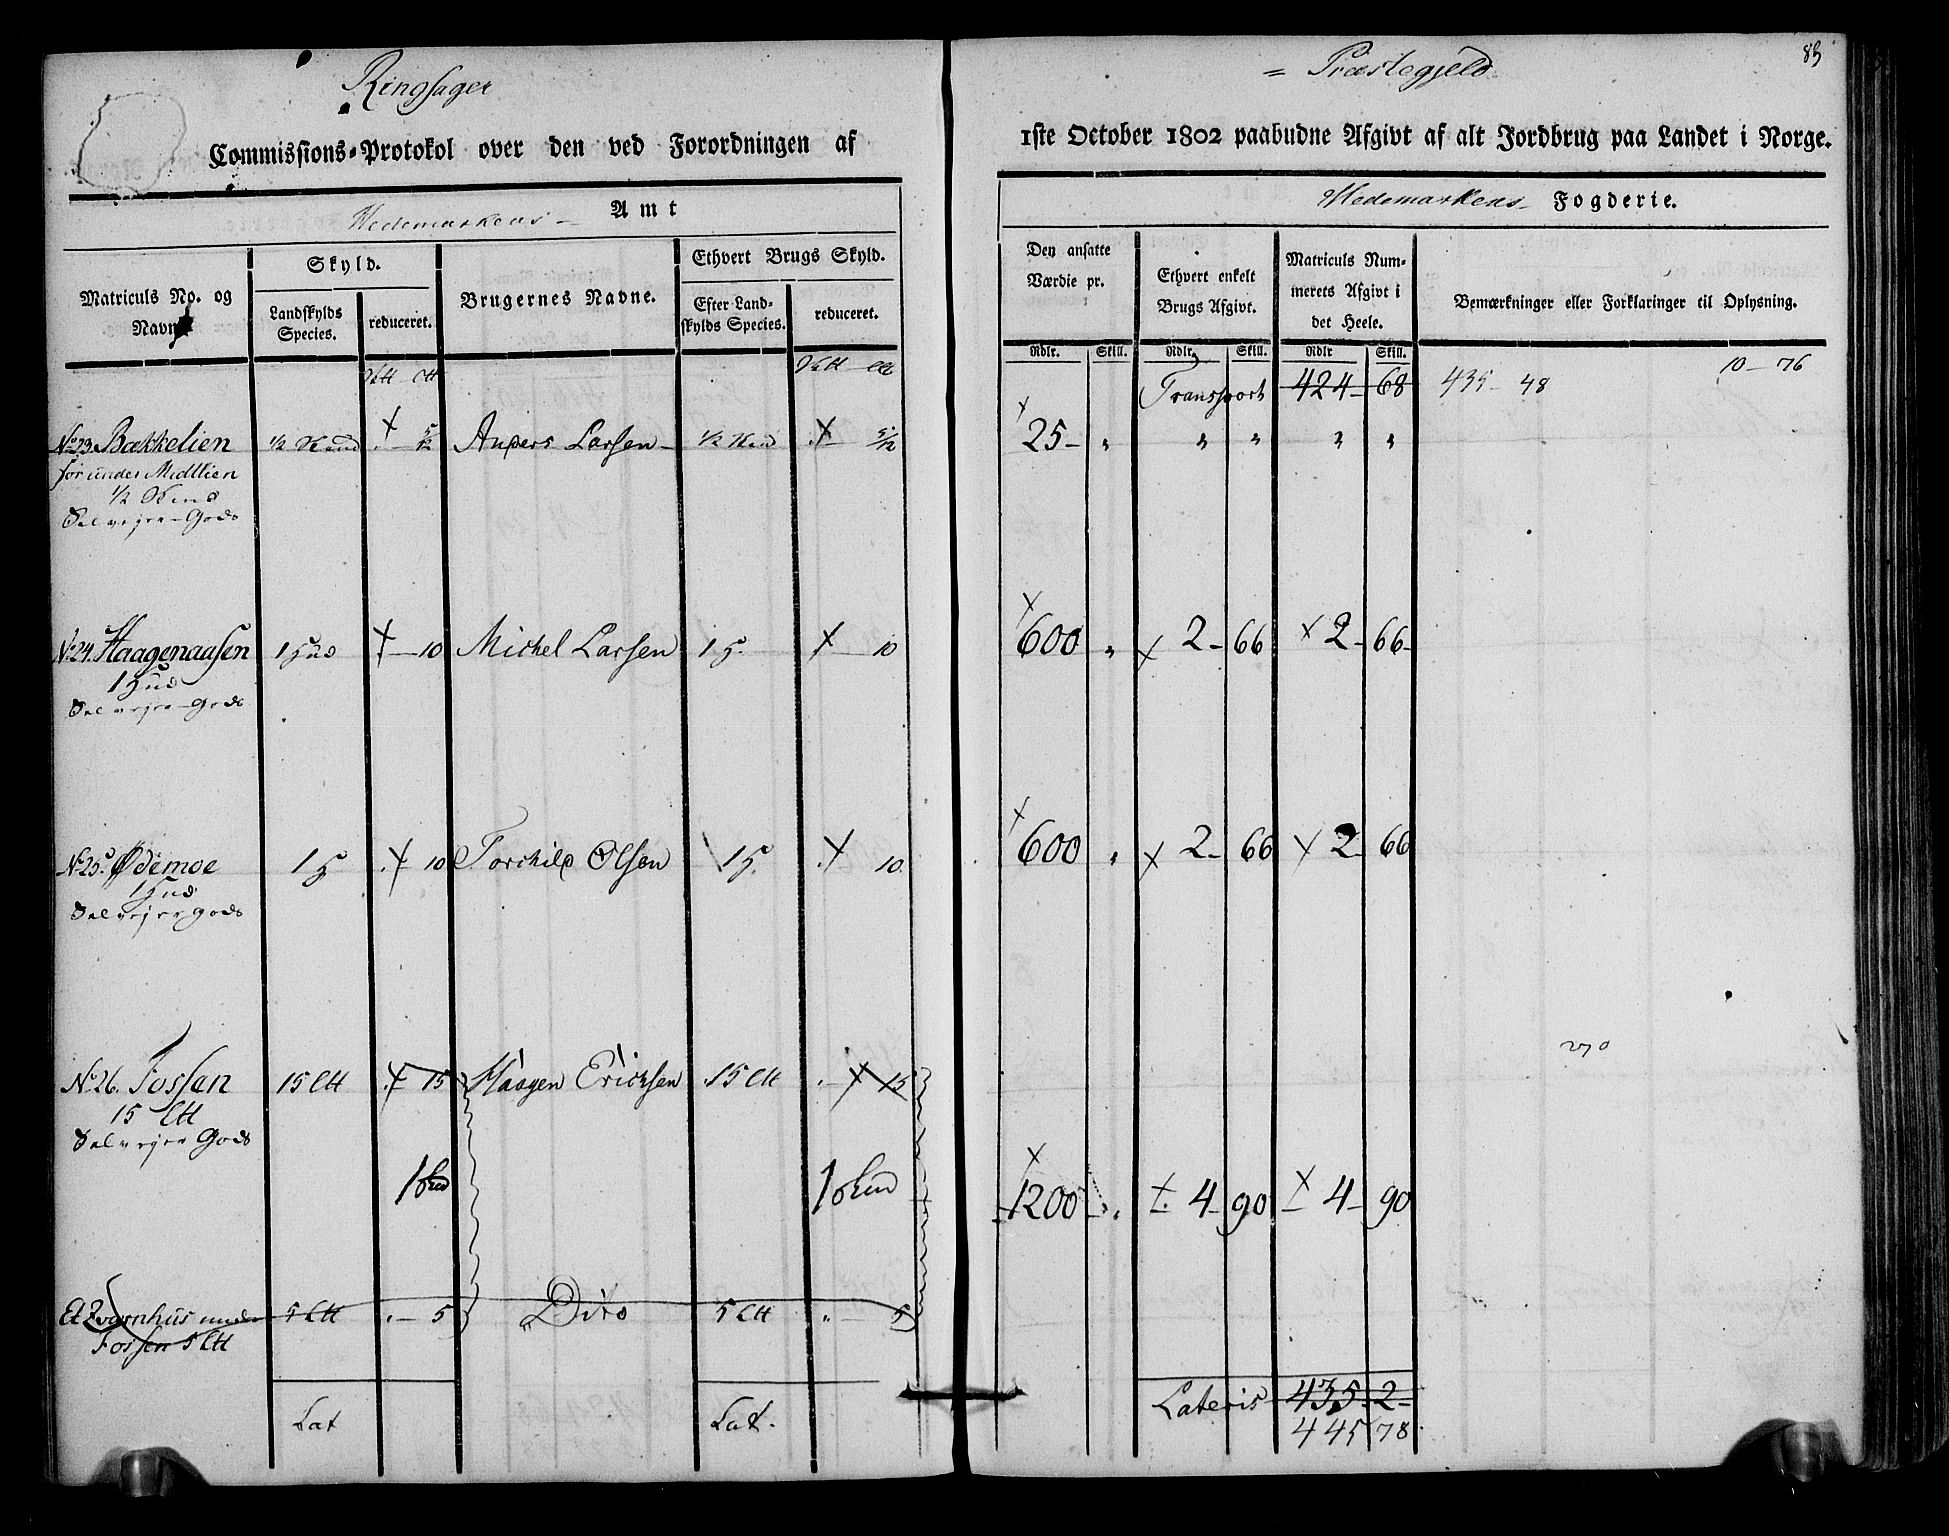 Ringsager
= Præstegjeld
83
Commissions-Protokol over den ved Forordningen af
1ste October 1802 paabudne Afgivt af alt Jordbrug paa Landet i Norge.
Hedemarkens Amt
Hedemarkens Fogderie.
Matriculs No. og Navn
Skyld.
Landskylds Species.
reduceret.
Brugernes Navne.
Ethvert Brugs Skyld.
Efter Landskylds Species.
reduceret.
Den ansatte Værdie pr.
Ethvert enkelt Brugs Afgivt.
Matriculs Nummerets Afgivt i det Heele.
Bemærkninger eller Forklaringer til Oplysning.
Rdlr. Skill. Rdlr. Skill. Rdlr Skill.
Transport 424 - 68 435 - 48 10 - 76
No 23. Bækkelien 1/2 Hud 5/12 Anders Larsen 1/2 Hud 5/12 25 - " " " " "
før under Midtlien
1/2 Hud
Selveyer-Gods
No 24. Haagenausen 1 Hud 10 Michel Larsen 1 H 10 600 " 2 - 66 2 - 66
1 Hud
Selveyer-Gods
No 25. Ødemoe 1 H 10 Torchild Olsen 1 H. 10. 600 " 2 - 66 2 - 66
1 Hud
Selveyer Gods
No 26. Fossen 15 Ltt 15 Haagen Erichsen 15 Ltt 15
15 Ltt
Selveyer Gods
270
1 Hud 1 Hud 1200 - " 4 - 90 4 - 90
Et Qvarnhus under 5 Ltt " - 5 Dito 5 Ltt " 5
Fossen 5 Ltt
Lat Lat. Lateris 435. 2 -
445 78